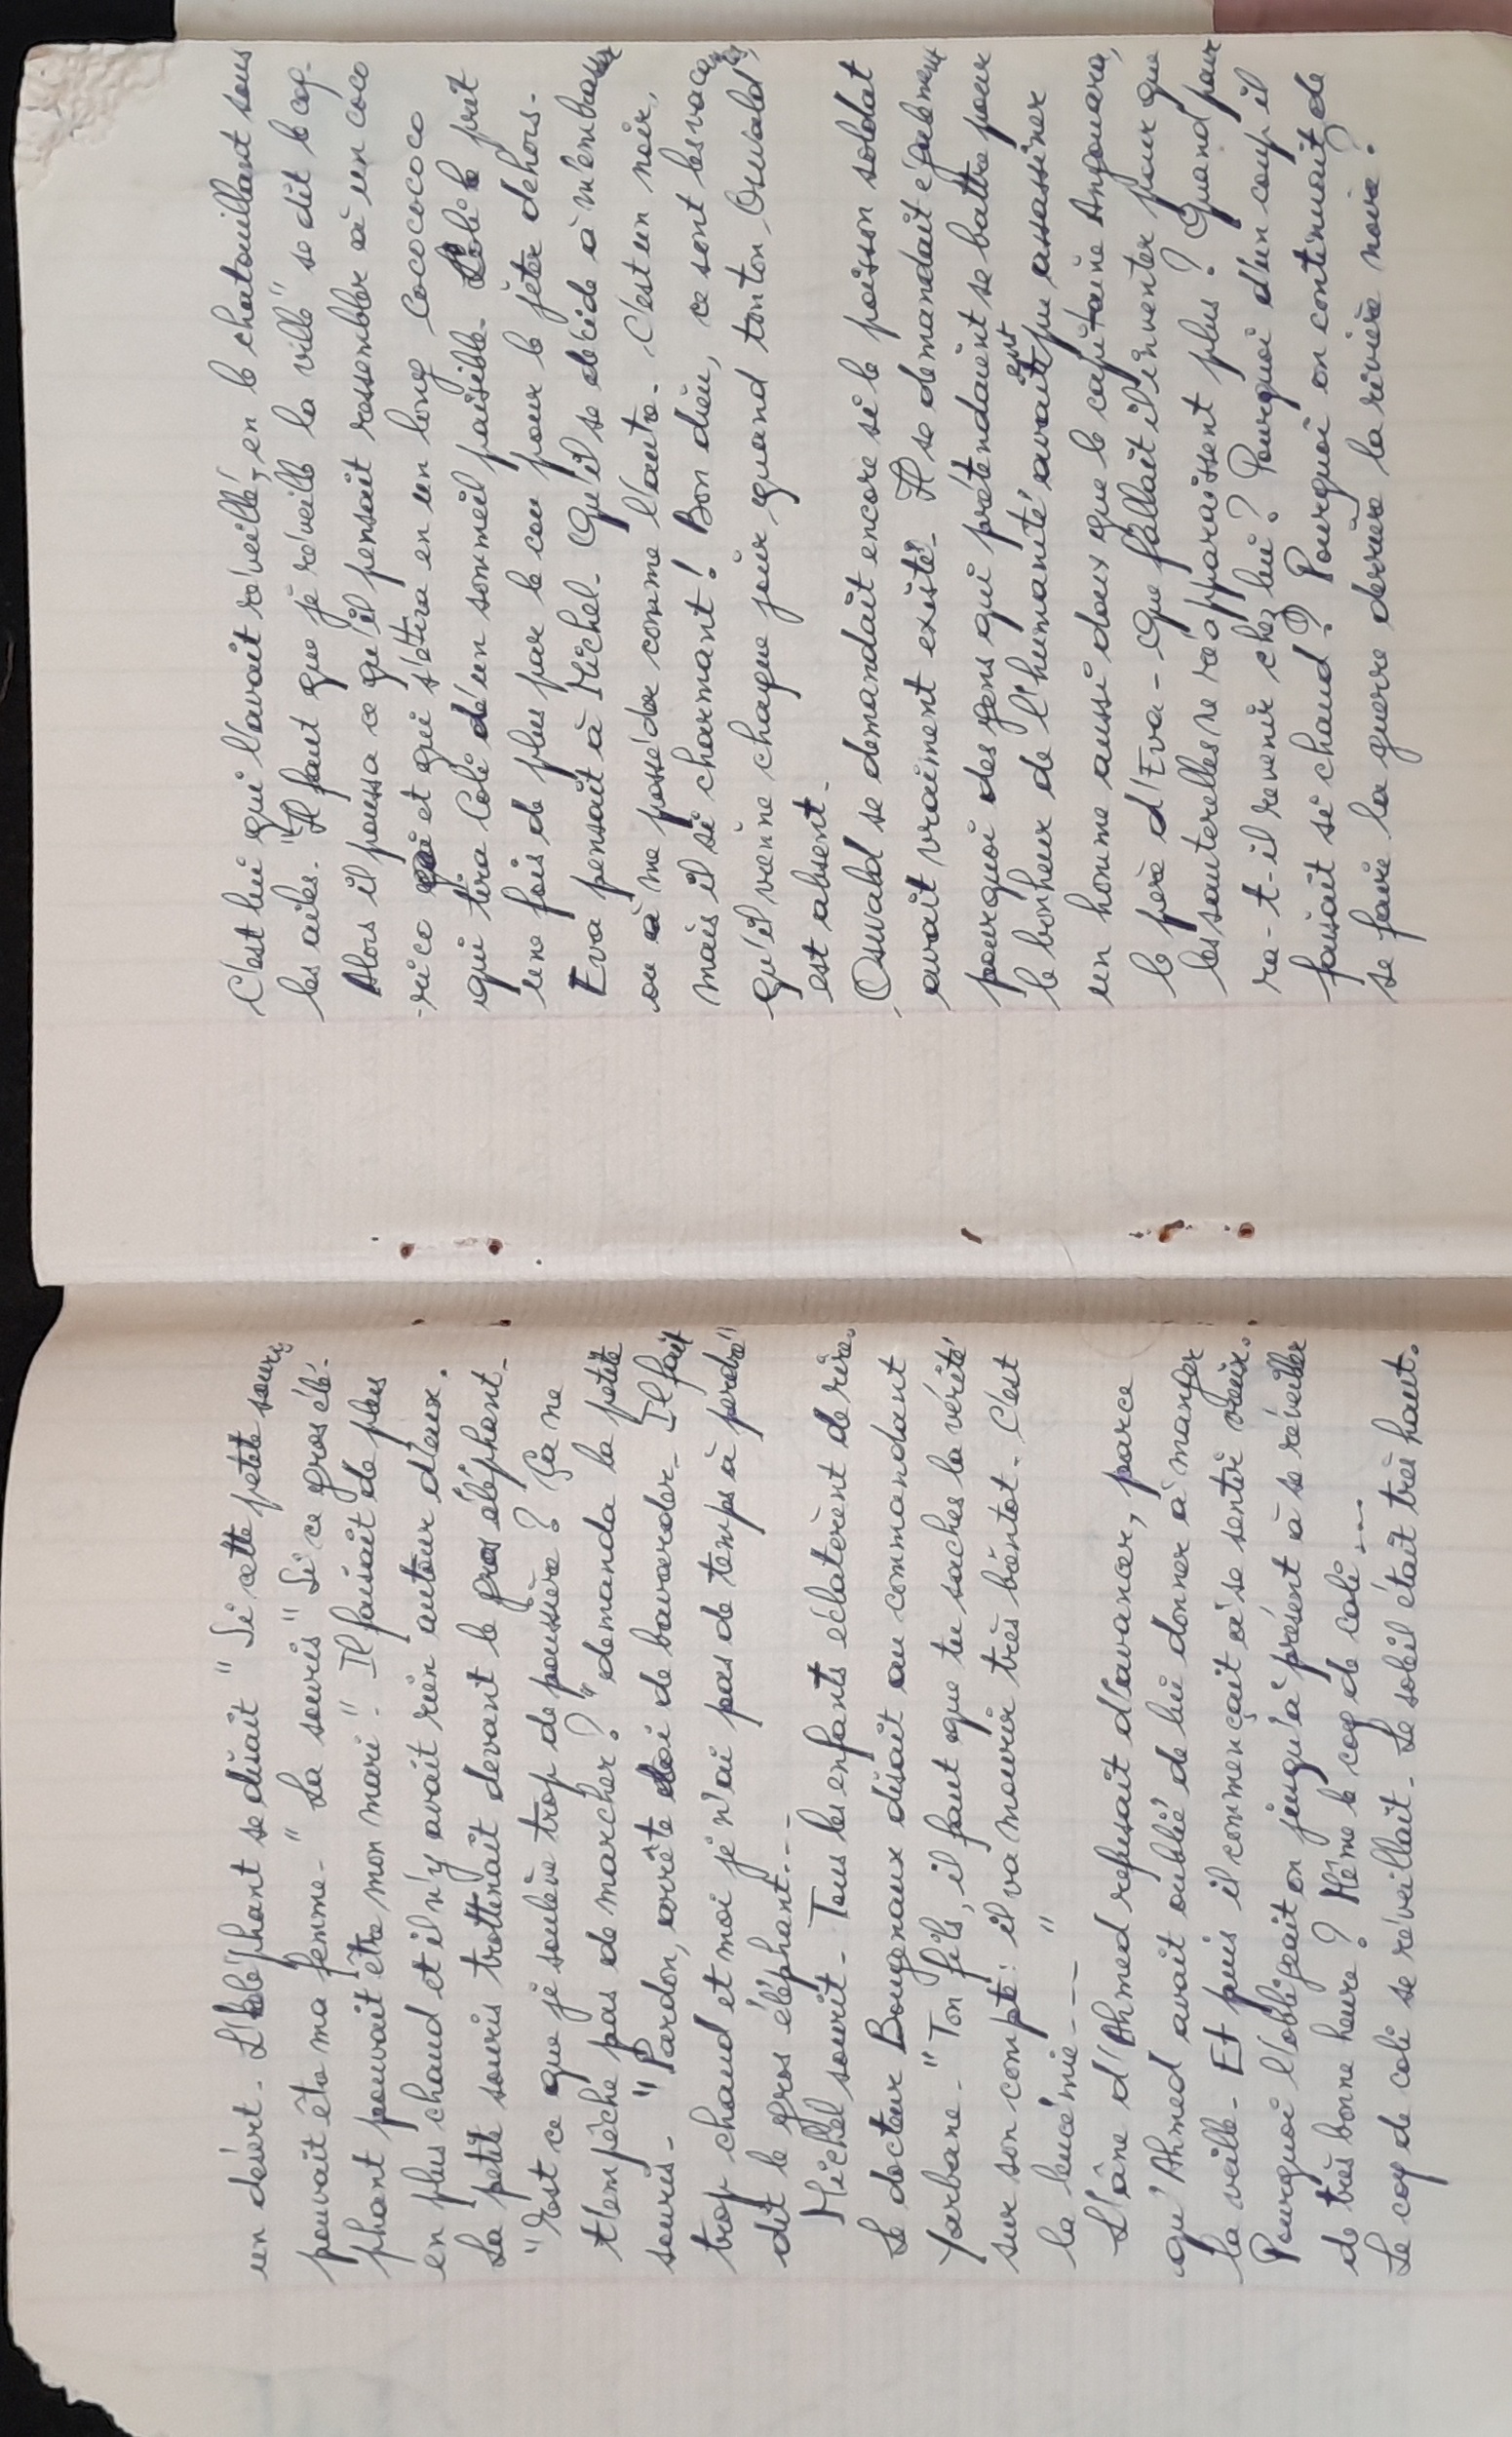 un désert. L'éléphant se disait " Si cette petite souris
pouvait être ma femme. " La souris " Si ce gros élé-
phant pouvait être mon mari ". Il faisait de plus
en plus chaud et il n'y avait rien autour d'eux.
La petite souris trottenait devant le gros éléphant.
" Est ce que je soulève trop de poussière ? Ça ne
t'empêche pas de marcher ? " demanda la petite
souris. " Pardon, arrête toi de bavarder. Il fait
trop chaud et moi je n'ai pas de temps à perdre "
dit le gros éléphant...
Michel sourit. Tous les enfants éclatèrent de rire.
Le docteur Bougenaux disait au commandant
Yarbane. " Ton fils, il faut que tu saches la vérité
sur son compte : il va mourir très bientot. C'est
la leucémie ---- "
L'âne d'Ahmed refusait d'avancer, parce
qu'Ahmed avait oublié de lui donner à manger
la veille. Et puis il commençait à se sentir vieux.
Pourquoi l'obligeait on jusqu'à présent à se réveiller
de très bonne heure ? Même le coq de coli ....
Le coq de coli se réveillait. Le soleil était très haut.
C'est lui qui l'avait réveillé, en le chatouillant sous
les ailes. " Il faut que je réveille la ville " se dit le coq.
Alors il poussa ce qu'il pensait ressembler à un coco
-rico et qui s'étira en un long Cocococo
qui tira Coli d'un sommeil paisible. Coli le prit
une fois de plus par le cou pour le jeter dehors.
Eva pensait à Michel. Qu'il se décide à m'embrasser
ou à me posséder comme l'autre. C'est un noir,
mais il si charmant ! Bon dieu, ce sont les vacances,
qu'il vienne chaque jour quand tonton Oswald
est absent.
Oswald se demandait encore si le poisson soldat
avait vraiment existé. Il se demandait également
pourquoi des gens qui prétendaient se battre pour
le bonheur de l'humanité avaient pu assassiner
un homme aussi doux que le capitaine Angouara,
le père d'Eva. Que fallait il inventer pour que
les sauterelles ne réapparaissent plus ? Quand pour
ra-t-il revenir chez lui ? Pourquoi d'un coup il
faisait si chaud ? Pourquoi on continuait de
se faire la guerre derrière la rivière noire ?